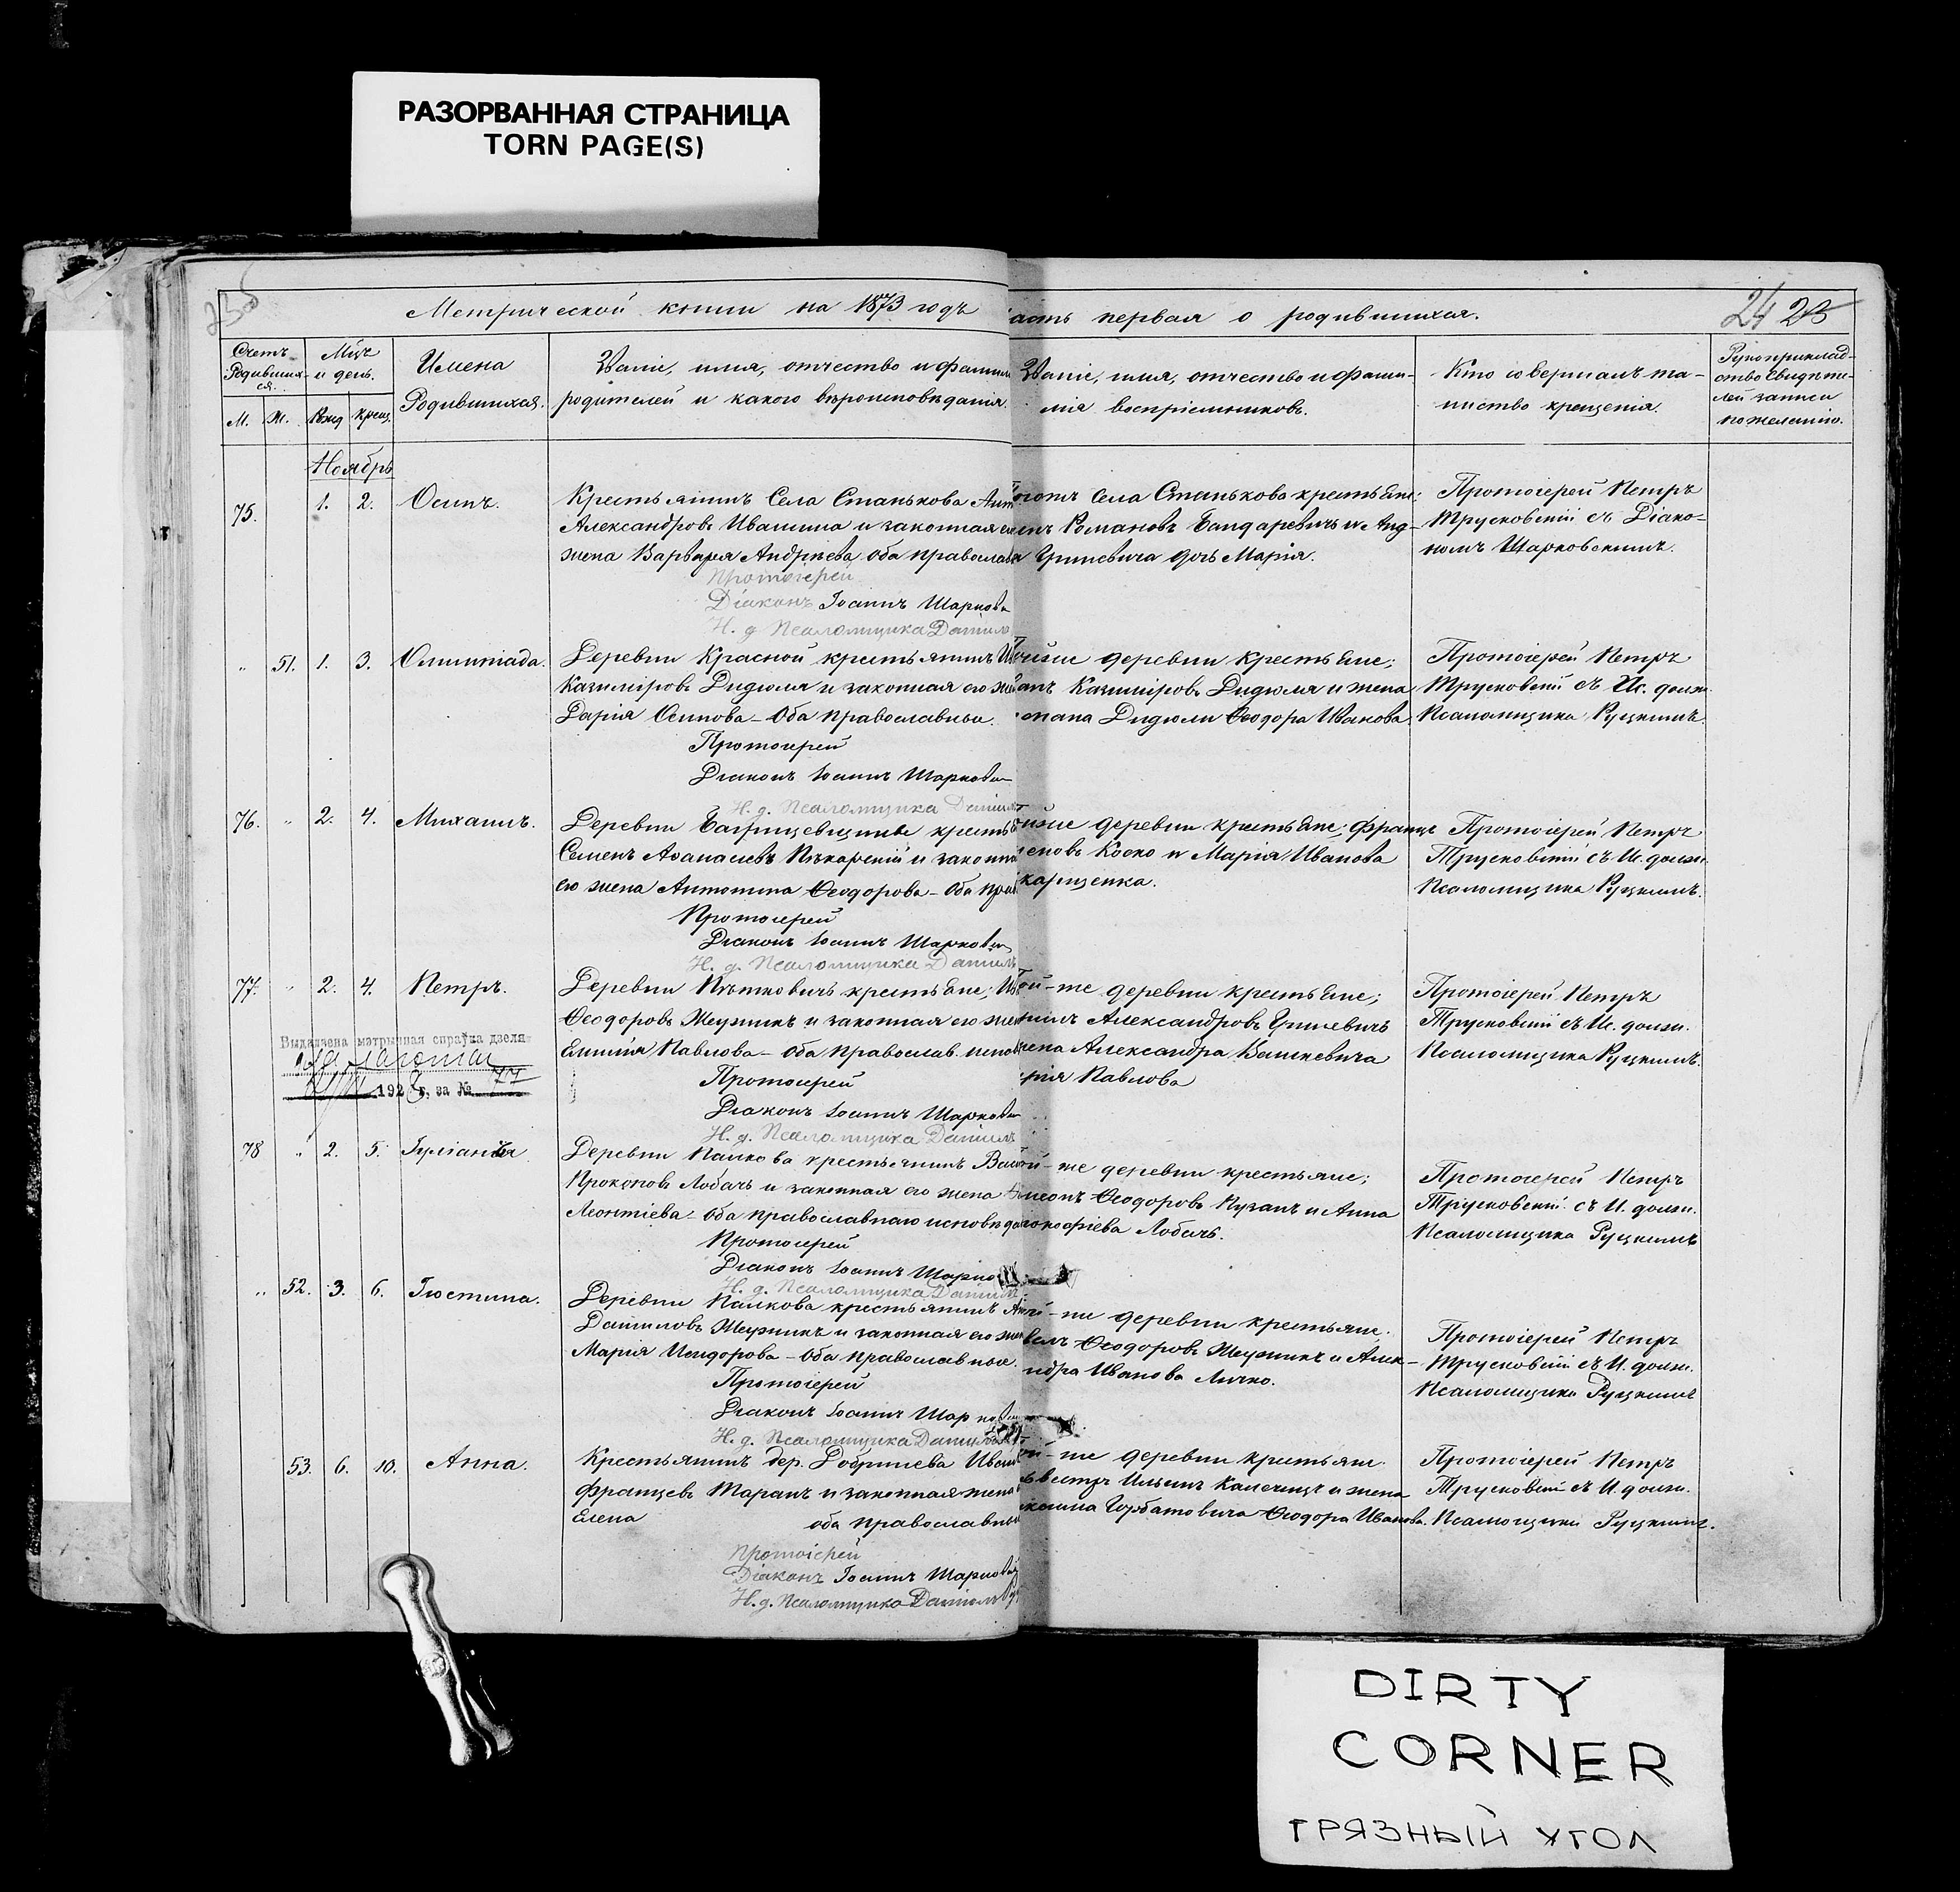 РАЗОРВАННАЯ СТРАНИЦА
TORN PAGE(S)
Метрической книги на 1873 годъ
асть первая о родившихся.
24 25
Счетъ
Родивших-
ся.
Мцъ
и день.
Имена
Родившихся.
Званіе, имя, отчество и фамилія
родителей и какого вѣроисповѣданія.
Званіе, имя, отчество и фами-
лія воспріемниковъ.
Кто совершалъ та-
инство крещенія.
Рукоприклад-
ство Свидѣте-
лей записи
по желанію.
М. Ж. Рожд крещ.
Ноябрь
75. 1. 2. Осипъ.
Крестьянинъ Села Станькова
Александровъ Ивашина и законная
жена Варвара Андріева, оба православ
Протоіерей
Діаконъ Іоаннъ Шарков
И. д. Псаломщика Даніил
Села Станькова крестьяне:
Романовъ Бандаревичъ и Анд-
Гриневича дочь Марія.
Протоіерей Петръ
Трусковскій съ Діако-
номъ Шарковскимъ.
„ 51. 1. 3. Олимпіада.
Деревни Красной крестьянинъ
Казиміровъ Дидюля и законная его
Дарія Осипова – Оба православные.
Протоіерей
Діаконъ Іоаннъ Шарков
И. д. Псаломщика Даніил
деревни крестьяне;
Казиміровъ Дидюля и жена
Дидюли Ѳеодора Иванова.
Протоіерей Петръ
Трусковскій съ Ис. должн.
Псаломщика Руцкимъ.
76. „ 2. 4. Михаилъ.
Деревни крест
Семенъ Аѳанасіевъ Пекарскій и законн
его жена Антонина Ѳеодорова – Оба прав
Протоіерей
Діаконъ Іоаннъ Шарков
И. д. Псаломщика Даніилъ
деревни крестьяне; Францъ
Коско и Марія Иванова
Протоіерей Петръ
Трусковскій съ Ис. должн.
Псаломщика Руцкимъ.
77. „ 2. 4. Петръ.
Деревни Петковичъ крестьяне;
Ѳеодоровъ Жаужикъ и законная его жен
Павлова – Оба православ. испов
Протоіерей
Діаконъ Іоаннъ Шарков
И. д. Псаломщика Даніилъ
ой-же деревни крестьяне;
Александровъ Гриневичъ
Александра Кашкевича
Павлова
Протоіерей Петръ
Трусковскій съ Ис. должн.
Псаломщика Руцкимъ.
Выдадзена мэтрычная спраўка дзеля
192 г. за № 77
78 „ 2. 5.
Деревни Панкова крестьянинъ
Прокоповъ Лобачъ и законная его жена
Леонтіева – Оба православнаго исповѣда
Протоіерей
Діаконъ Іоаннъ
И. д. Псаломщика Даніил
ой-же деревни крестьяне;
Ѳеодоровъ и Анна
Лобачъ.
Протоіерей Петръ
Трусковскій съ И. должн.
Псаломщика Руцкимъ
„ 52. 3. 6. Іюстина.
Деревни Панкова крестьянинъ
Даниловъ Жаужикъ и законная его
Марія Исидорова – Оба православные.
Протоіерей
Діаконъ Іоаннъ Шарков
И. д. Псаломщика Даніил
деревни крестьяне.
Ѳеодоровъ Жаужикъ и Алек-
ндра Иванова Личко.
Протоіерей Петръ
Трусковскій съ И. должн.
Псаломщика Руцкимъ
53. 6. 10. Анна.
Крестьянинъ дер. Добринева
Францевъ Таранъ и законная жена
Елена оба православны
Протоіерей
Діаконъ Іоаннъ Шарков
И. д. Псаломщика Даніилъ
ой-же деревни крестьяне.
Ильинъ и жена
Горбатовича Ѳеодора Иванова.
Протоіерей Петръ
Трусковскій съ И. должн.
Псаломщика Руцкимъ.
DIRTY
CORNER
ГРЯЗНЫЙ УГОЛ